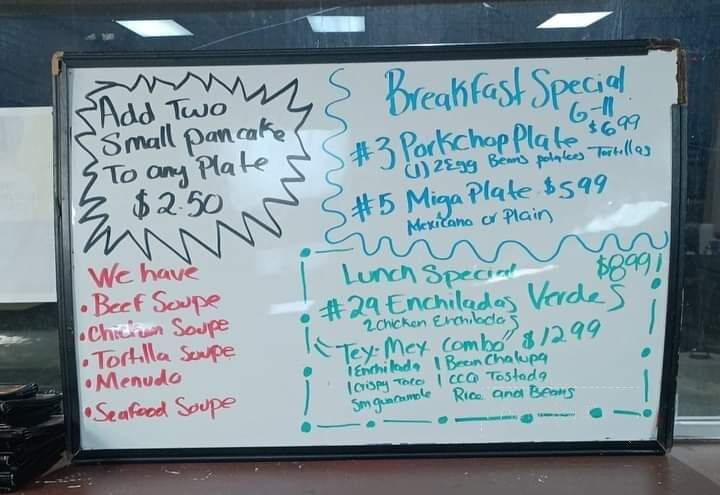 Add Two
Small pancake
To any Plate
$2.50
Breakfast Special
6-11
#3 Porkchop Plate $6.99
(1) 2 Egg Beans potatoes Tortillas
#5 Miga Plate $5.99
Mexicana or Plain
We have
• Beef Soupe
• Chicken Soupe
• Tortilla Soupe
• Menudo
• Seafood Soupe
Lunch Special $8.99
#29 Enchiladas Verdes
2 chicken Enchiladas
"Tex-Mex Combo" $12.99
1 Enchilada 1 Bean Chalupa
1 Crispy Taco 1 CCQ Tostada
Sm guacamole Rice and Beans